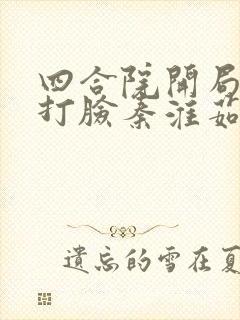 四合院開局
打臉秦淮茹
遺忘的雪在夏